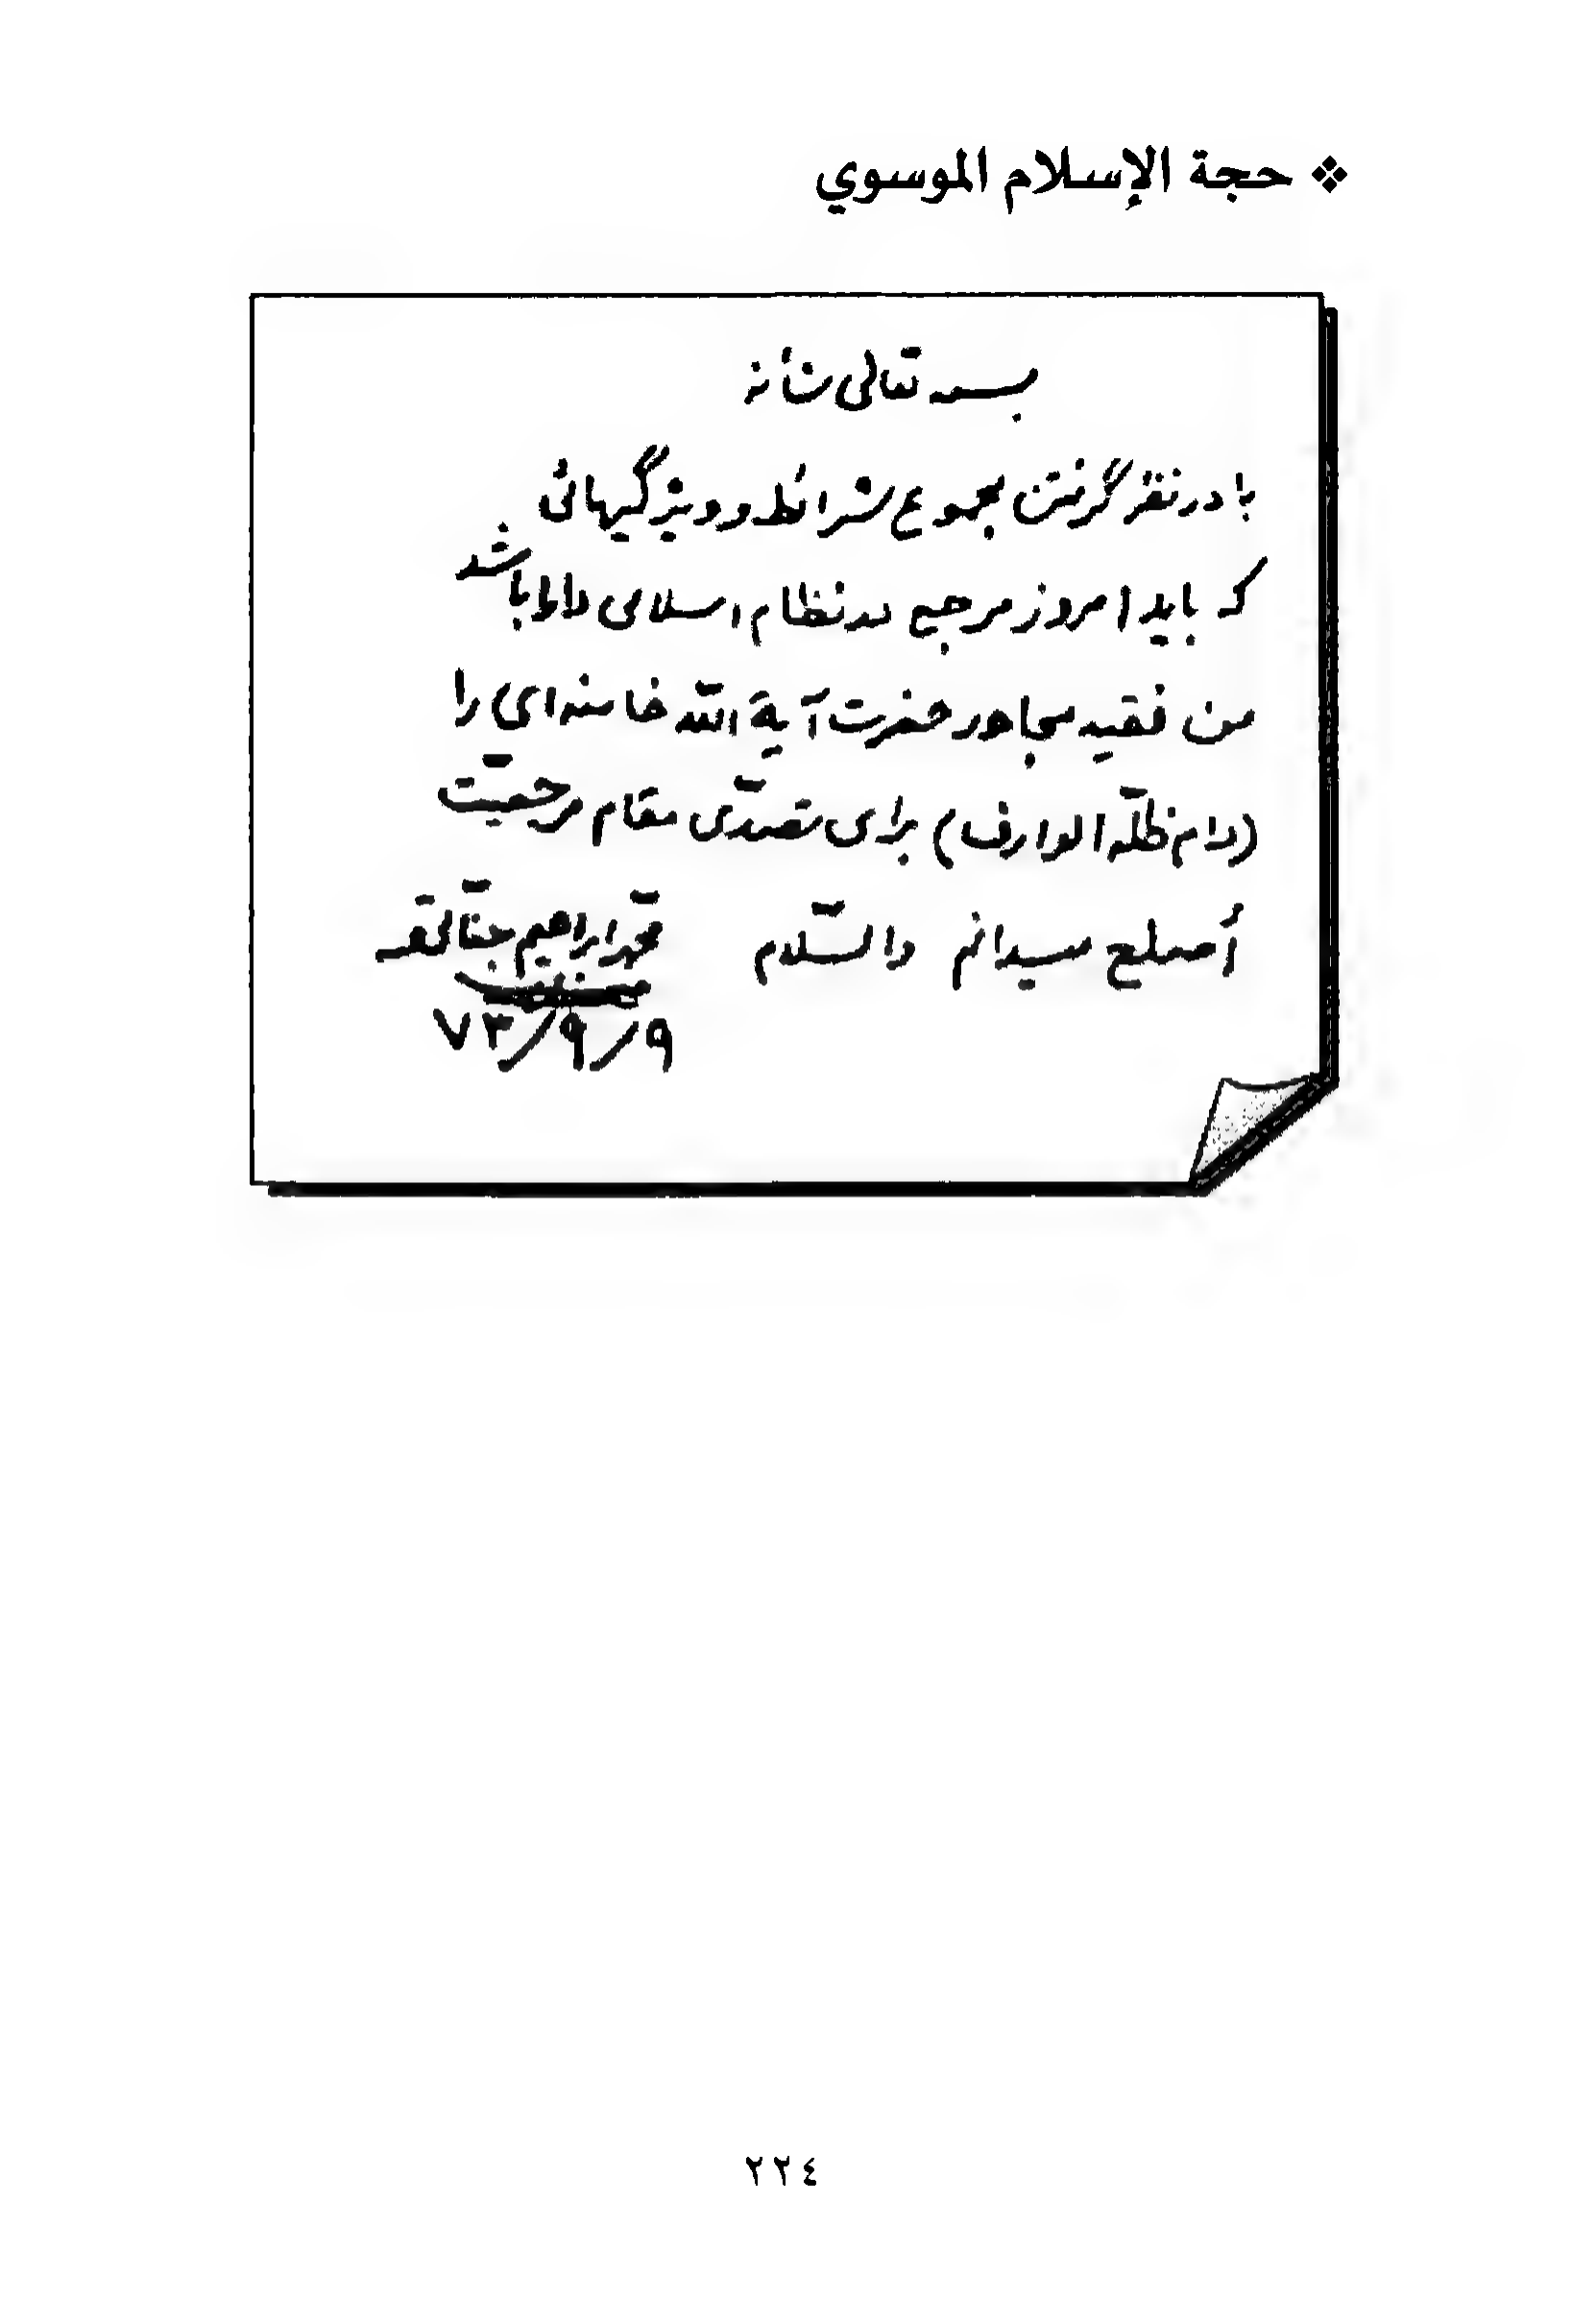 ❖ حجة الإسلام الموسوي
بسمه تعالی شأنه
با در نظر گرفتن مجموع شرائط و ویژگیهائی
که باید امروز مرجع در نظام اسلامی دارا باشد
من فقیه مجاهد حضرت آیة الله خامنه‌ای را
(دام ظلّه الوارف) برای تصدّی مقام مرجعیّت
أصلح میدانم والسّلام
محمّد ابراهیم جنّاتی
۷۳/۹/۹
٢٢٤